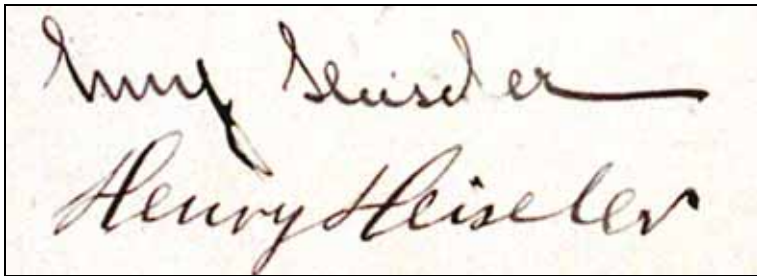 Henry Heiseler
Henry Heiseler